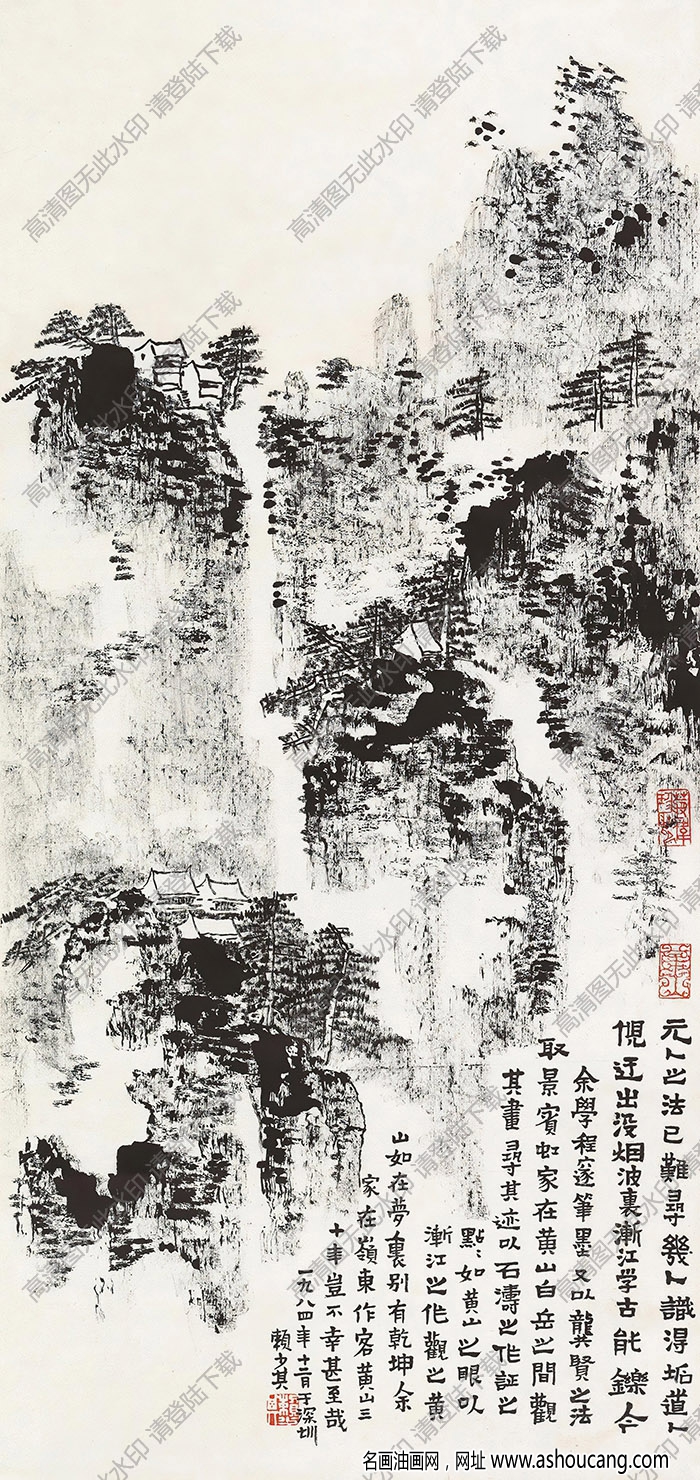 元人之法已難尋幾人識得垢道人
倪迂出没烟波裏漸江学古能鑠今
余學程邃筆墨又以龔賢之法
取景賓虹家在黄山白岳之間觀
其畫尋其迹以石濤之作証之
點點如黄山之眼以
漸江之作觀之黄
山如在夢裏别有乾坤余
家在嶺東作客黄山三
十年豈不幸甚至哉
一九八四年十二月于深圳
賴少其
高清图无此水印 请登陆下载
名画油画网，网址 www.ashoucang.com